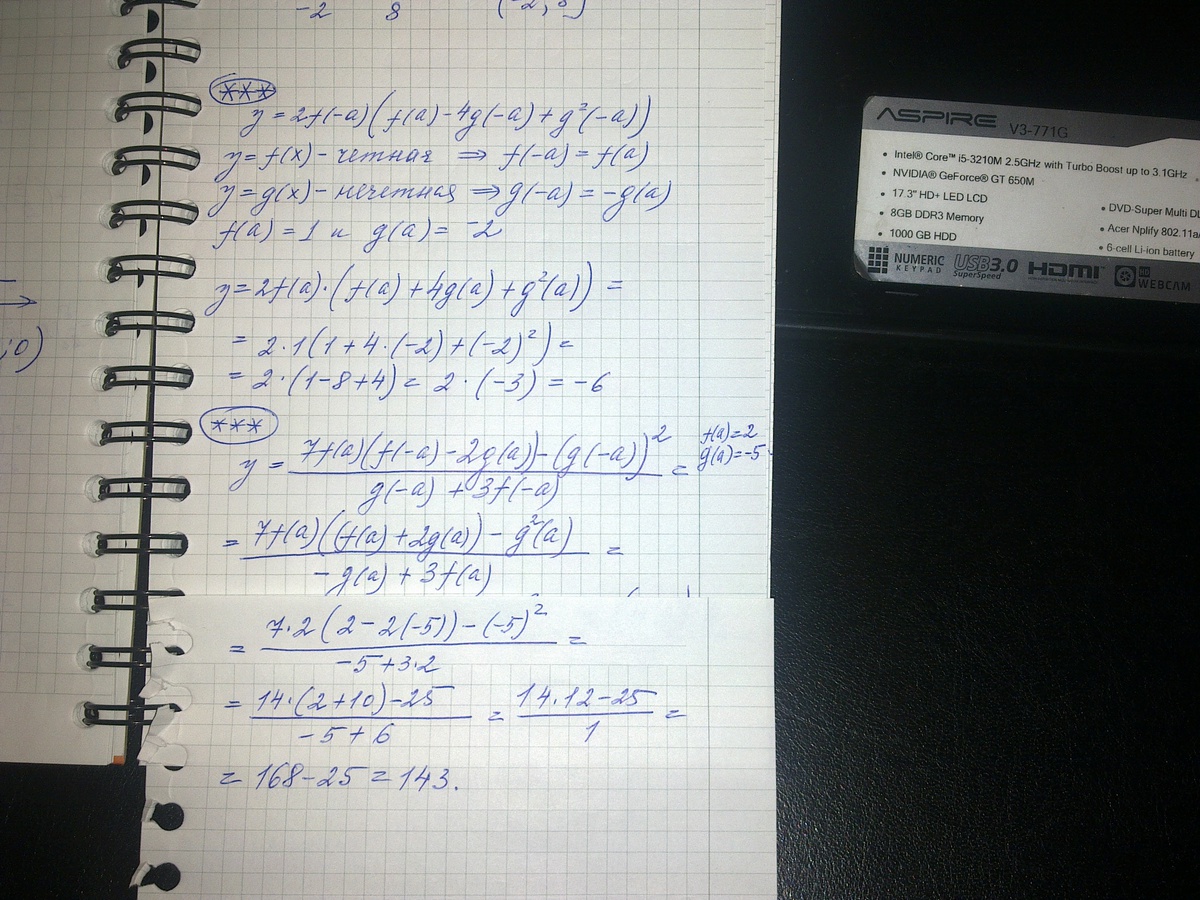 -2 8 (-2; 8)
***
y = 2f(-a)(f(a) - 4g(-a) + g²(-a))
y = f(x) - четная ⇒ f(-a) = f(a)
y = g(x) - нечетная ⇒ g(-a) = -g(a)
f(a) = 1 и g(a) = -2
y = 2f(a)·(f(a) + 4g(a) + g²(a)) =
= 2·1(1 + 4·(-2) + (-2)²) =
= 2·(1 - 8 + 4) = 2·(-3) = -6
***
y = (7f(a)(f(-a) - 2g(a)) - (g(-a))²) / (g(-a) + 3f(-a)) =
f(a) = 2
g(a) = -5
= (7f(a)((f(a) + 2g(a)) - g²(a)) / (-g(a) + 3f(a)) =
= (7·2(2 - 2(-5)) - (-5)²) / (-5 + 3·2) =
= (14·(2 + 10) - 25) / (-5 + 6) = (14·12 - 25) / 1 =
= 168 - 25 = 143.
;0)
ASPIRE V3-771G
• Intel® Core™ i5-3210M 2.5GHz with Turbo Boost up to 3.1GHz
• NVIDIA® GeForce® GT 650M
• 17.3" HD+ LED LCD
• 8GB DDR3 Memory
• 1000 GB HDD
• DVD-Super Multi DL
• Acer Nplify 802.11a/
• 6-cell Li-ion battery
NUMERIC KEYPAD
USB 3.0 SuperSpeed
HDMI
HD WEBCAM